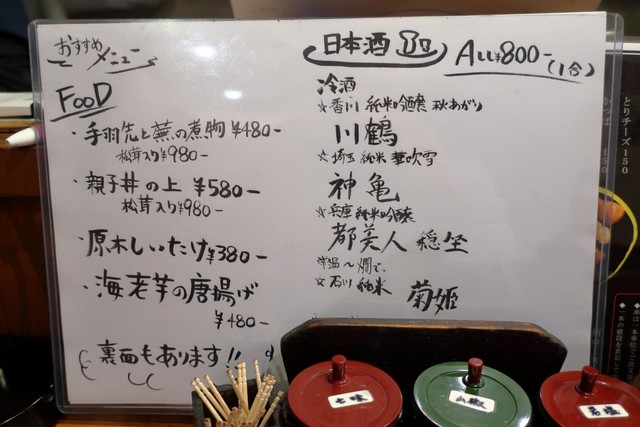 おすすめメニュー
FooD
・手羽先と蕪の煮物 ¥480-
松茸入り¥980-
・親子丼の上 ¥580-
松茸入り¥980-
・原木しいたけ¥380-
・海老芋の唐揚げ
¥480-
裏面もあります!!
日本酒
ALL¥800-
(1合)
冷酒
☆香川 純米吟醸 秋あがり
川鶴
☆埼玉 純米 華吹雪
神亀
☆兵庫 純米吟醸
都美人
常温〜燗で、
☆石川 純米
菊姫
とりチーズ 150
150
七味
山椒